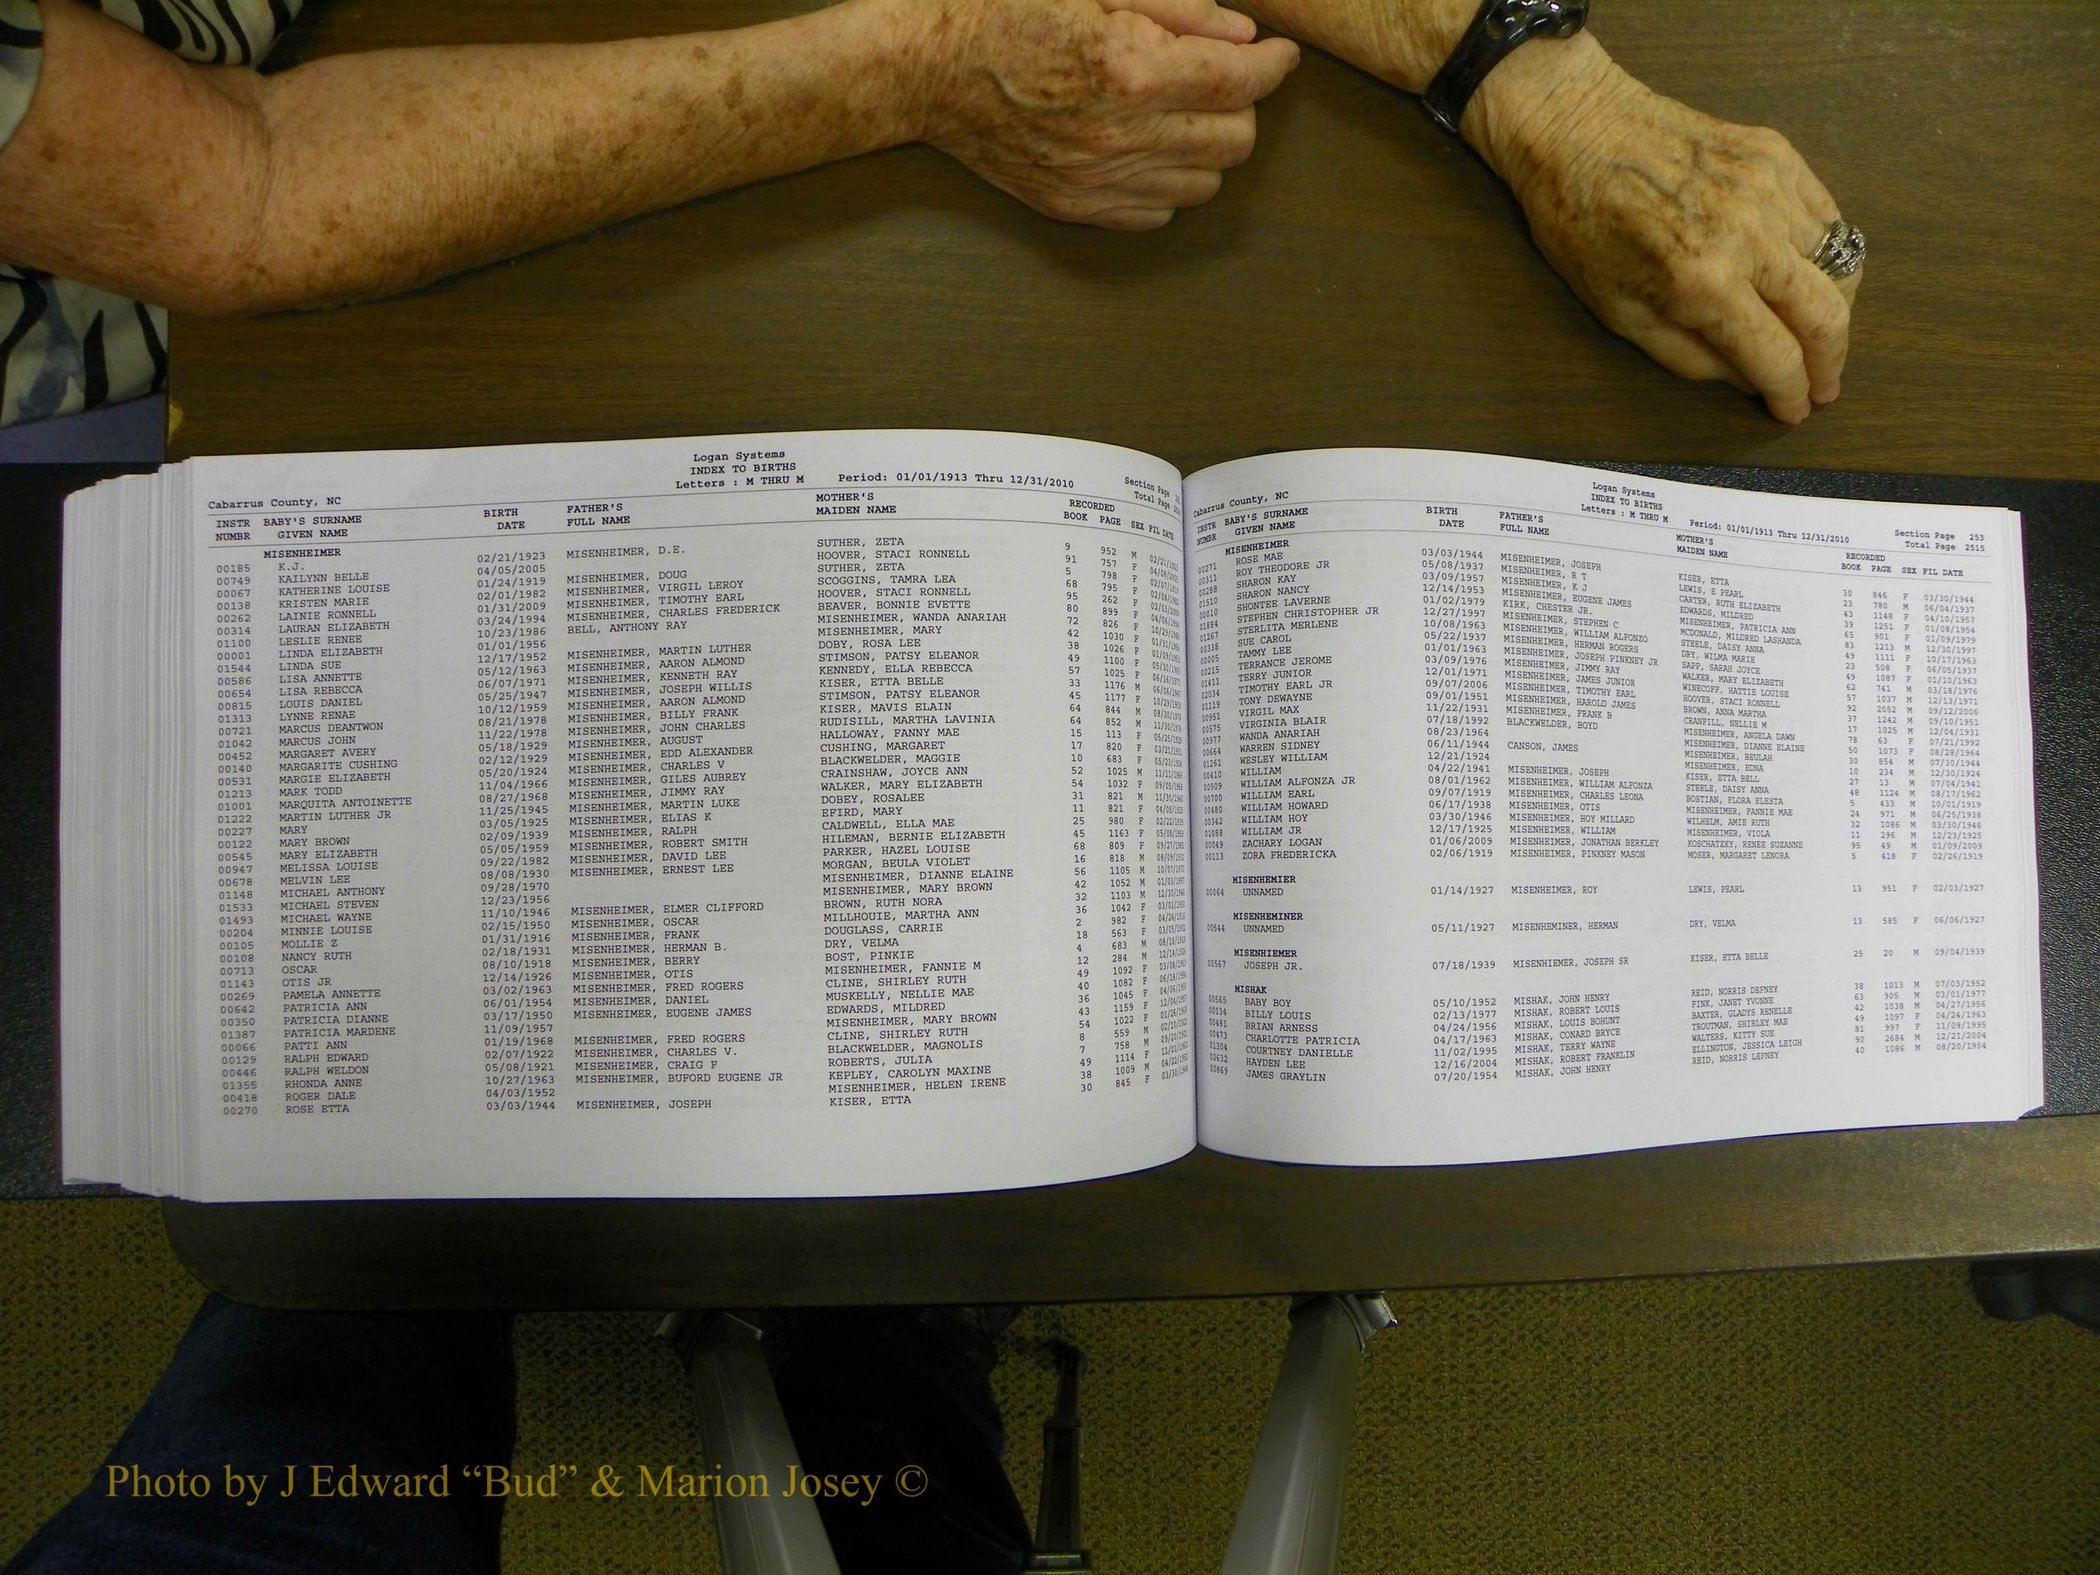 Logan Systems
INDEX TO BIRTHS
Letters : M THRU M Period: 01/01/1913 Thru 12/31/2010
Cabarrus County, NC Section Page
Total Page
INSTR BABY'S SURNAME BIRTH FATHER'S MOTHER'S RECORDED
NUMBR GIVEN NAME DATE FULL NAME MAIDEN NAME BOOK PAGE SEX FIL DATE
MISENHEIMER
00185 K.J. 02/21/1923 MISENHEIMER, D.E. SUTHER, ZETA 9 952 M
00749 KAILYNN BELLE 04/05/2005 HOOVER, STACI RONNELL 91 757 F
00067 KATHERINE LOUISE 01/24/1919 MISENHEIMER, DOUG SUTHER, ZETA 5 798 F
00138 KRISTEN MARIE 02/01/1982 MISENHEIMER, VIRGIL LEROY SCOGGINS, TAMRA LEA 68 795 F
00262 LAINIE RONNELL 01/31/2009 MISENHEIMER, TIMOTHY EARL HOOVER, STACI RONNELL 95 262 F
00314 LAURAN ELIZABETH 03/24/1994 MISENHEIMER, CHARLES FREDERICK BEAVER, BONNIE EVETTE 80 899 F
01100 LESLIE RENEE 10/23/1986 BELL, ANTHONY RAY MISENHEIMER, WANDA ANARIAH 72 826 F
00001 LINDA ELIZABETH 01/01/1956 MISENHEIMER, MARY 42 1030 F
01544 LINDA SUE 12/17/1952 MISENHEIMER, MARTIN LUTHER DOBY, ROSA LEE 38 1026 F
00586 LISA ANNETTE 05/12/1963 MISENHEIMER, AARON ALMOND STIMSON, PATSY ELEANOR 49 1100 F
00654 LISA REBECCA 06/07/1971 MISENHEIMER, KENNETH RAY KENNEDY, ELLA REBECCA 57 1025 F
00815 LOUIS DANIEL 05/25/1947 MISENHEIMER, JOSEPH WILLIS KISER, ETTA BELLE 33 1176 M
01313 LYNNE RENAE 10/12/1959 MISENHEIMER, AARON ALMOND STIMSON, PATSY ELEANOR 45 1177 F
00721 MARCUS DEANTWON 08/21/1978 MISENHEIMER, BILLY FRANK KISER, MAVIS ELAIN 64 844 M
01042 MARCUS JOHN 11/22/1978 MISENHEIMER, JOHN CHARLES RUDISILL, MARTHA LAVINIA 64 852 M
00452 MARGARET AVERY 05/18/1929 MISENHEIMER, AUGUST HALLOWAY, FANNY MAE 15 113 F
00140 MARGARITE CUSHING 02/12/1929 MISENHEIMER, EDD ALEXANDER CUSHING, MARGARET 17 820 F
00531 MARGIE ELIZABETH 05/20/1924 MISENHEIMER, CHARLES V BLACKWELDER, MAGGIE 10 683 F
01213 MARK TODD 11/04/1966 MISENHEIMER, GILES AUBREY CRAINSHAW, JOYCE ANN 52 1025 M
01001 MARQUITA ANTOINETTE 08/27/1968 MISENHEIMER, JIMMY RAY WALKER, MARY ELIZABETH 54 1032 F
01222 MARTIN LUTHER JR 11/25/1945 MISENHEIMER, MARTIN LUKE DOBEY, ROSALEE 31 821 M
00227 MARY 03/05/1925 MISENHEIMER, ELIAS K EFIRD, MARY 11 821 F
00122 MARY BROWN 02/09/1939 MISENHEIMER, RALPH CALDWELL, ELLA MAE 25 980 F
00545 MARY ELIZABETH 05/05/1959 MISENHEIMER, ROBERT SMITH HILEMAN, BERNIE ELIZABETH 45 1163 F
00947 MELISSA LOUISE 09/22/1982 MISENHEIMER, DAVID LEE PARKER, HAZEL LOUISE 68 809 F
00678 MELVIN LEE 08/08/1930 MISENHEIMER, ERNEST LEE MORGAN, BEULA VIOLET 16 818 M
01148 MICHAEL ANTHONY 09/28/1970 MISENHEIMER, DIANNE ELAINE 56 1105 M
01533 MICHAEL STEVEN 12/23/1956 MISENHEIMER, MARY BROWN 42 1052 M
01493 MICHAEL WAYNE 11/10/1946 MISENHEIMER, ELMER CLIFFORD BROWN, RUTH NORA 32 1103 M
00204 MINNIE LOUISE 02/15/1950 MISENHEIMER, OSCAR MILLHOUIE, MARTHA ANN 36 1042 F
00105 MOLLIE Z 01/31/1916 MISENHEIMER, FRANK DOUGLASS, CARRIE 2 982 F
00108 NANCY RUTH 02/18/1931 MISENHEIMER, HERMAN B. DRY, VELMA 18 563 F
00713 OSCAR 08/10/1918 MISENHEIMER, BERRY BOST, PINKIE 4 683 M
01143 OTIS JR 12/14/1926 MISENHEIMER, OTIS MISENHEIMER, FANNIE M 12 284 M
00269 PAMELA ANNETTE 03/02/1963 MISENHEIMER, FRED ROGERS CLINE, SHIRLEY RUTH 49 1092 F
00642 PATRICIA ANN 06/01/1954 MISENHEIMER, DANIEL MUSKELLY, NELLIE MAE 40 1082 F
00350 PATRICIA DIANNE 03/17/1950 MISENHEIMER, EUGENE JAMES EDWARDS, MILDRED 36 1045 F
01387 PATRICIA MARDENE 11/09/1957 MISENHEIMER, MARY BROWN 43 1159 F
00066 PATTI ANN 01/19/1968 MISENHEIMER, FRED ROGERS CLINE, SHIRLEY RUTH 54 1022 F
00129 RALPH EDWARD 02/07/1922 MISENHEIMER, CHARLES V. BLACKWELDER, MAGNOLIS 8 559 M
00446 RALPH WELDON 05/08/1921 MISENHEIMER, CRAIG F ROBERTS, JULIA 7 758 M
01355 RHONDA ANNE 10/27/1963 MISENHEIMER, BUFORD EUGENE JR KEPLEY, CAROLYN MAXINE 49 1114 F
00418 ROGER DALE 04/03/1952 MISENHEIMER, HELEN IRENE 38 1009 M
00270 ROSE ETTA 03/03/1944 MISENHEIMER, JOSEPH KISER, ETTA 30 845 F
Logan Systems
INDEX TO BIRTHS
Letters : M THRU M Period: 01/01/1913 Thru 12/31/2010
Cabarrus County, NC Section Page 253
Total Page 2515
INSTR BABY'S SURNAME BIRTH FATHER'S MOTHER'S RECORDED
NUMBR GIVEN NAME DATE FULL NAME MAIDEN NAME BOOK PAGE SEX FIL DATE
MISENHEIMER
00271 ROSE MAE 03/03/1944 MISENHEIMER, JOSEPH KISER, ETTA 30 846 F 03/30/1944
00311 ROY THEODORE JR 05/08/1937 MISENHEIMER, R T LEWIS, E PEARL 23 780 M 06/04/1937
00288 SHARON KAY 03/09/1957 MISENHEIMER, K J CARTER, RUTH ELIZABETH 43 1148 F 04/10/1957
01510 SHARON NANCY 12/14/1953 MISENHEIMER, EUGENE JAMES EDWARDS, MILDRED 39 1251 F 01/08/1954
00010 SHONTEE LAVERNE 01/02/1979 KIRK, CHESTER JR. MISENHEIMER, PATRICIA ANN 65 901 F 01/09/1979
01884 STEPHEN CHRISTOPHER JR 12/27/1997 MISENHEIMER, STEPHEN C MCDONALD, MILDRED LASHANDA 83 1213 M 12/30/1997
01267 STERLITA MERLENE 10/08/1963 MISENHEIMER, WILLIAM ALFONZO STEELE, DAISY ANNA 49 1111 F 10/17/1963
00338 SUE CAROL 05/22/1937 MISENHEIMER, HERMAN ROGERS DRY, WILMA MARIE 23 508 F 06/05/1937
00005 TAMMY LEE 01/01/1963 MISENHEIMER, JOSEPH PINKNEY JR SAPP, SARAH JOYCE 49 1087 F 01/10/1963
00215 TERRANCE JEROME 03/09/1976 MISENHEIMER, JIMMY RAY WALKER, MARY ELIZABETH 62 741 M 03/18/1976
01411 TERRY JUNIOR 12/01/1971 MISENHEIMER, JAMES JUNIOR WINECOFF, HATTIE LOUISE 57 1037 M 12/13/1971
02034 TIMOTHY EARL JR 09/07/2006 MISENHEIMER, TIMOTHY EARL HOOVER, STACI RONNELL 92 2052 M 09/12/2006
01119 TONY DEWAYNE 09/01/1951 MISENHEIMER, HAROLD JAMES BROWN, ANNA MARTHA 37 1242 M 09/10/1951
00951 VIRGIL MAX 11/22/1931 MISENHEIMER, FRANK B CRANFILL, NELLIE M 17 1025 M 12/04/1931
00575 VIRGINIA BLAIR 07/18/1992 BLACKWELDER, BOYD MISENHEIMER, ANGELA DAWN 78 63 F 07/21/1992
00977 WANDA ANARIAH 08/23/1964 MISENHEIMER, DIANNE ELAINE 50 1073 F 08/28/1964
00664 WARREN SIDNEY 06/11/1944 CANSON, JAMES MISENHEIMER, BEULAH 30 854 M 07/30/1944
01261 WESLEY WILLIAM 12/21/1924 MISENHEIMER, EDNA 10 234 M 12/30/1924
00410 WILLIAM 04/22/1941 MISENHEIMER, JOSEPH KISER, ETTA BELL 27 13 M 07/04/1941
00909 WILLIAM ALFONZA JR 08/01/1962 MISENHEIMER, WILLIAM ALFONZA STEELE, DAISY ANNA 48 1124 M 08/17/1962
00700 WILLIAM EARL 09/07/1919 MISENHEIMER, CHARLES LEONA BOSTIAN, FLORA ELESTA 5 433 M 10/01/1919
00480 WILLIAM HOWARD 06/17/1938 MISENHEIMER, OTIS MISENHEIMER, FANNIE MAE 24 971 M 06/25/1938
00342 WILLIAM HOY 03/30/1946 MISENHEIMER, HOY MILLARD WILHELM, AMIE RUTH 32 1086 M 03/30/1946
01088 WILLIAM JR 12/17/1925 MISENHEIMER, WILLIAM MISENHEIMER, VIOLA 11 296 M 12/23/1925
00049 ZACHARY LOGAN 01/06/2009 MISENHEIMER, JONATHAN BERKLEY KOSCHATZKY, RENEE SUZANNE 95 49 M 01/09/2009
00113 ZORA FREDERICKA 02/06/1919 MISENHEIMER, PINKNEY MASON MOSER, MARGARET LENORA 5 418 F 02/26/1919
MISENHEMIER
00064 UNNAMED 01/14/1927 MISENHEIMER, ROY LEWIS, PEARL 13 951 F 02/03/1927
MISENHEMINER
00544 UNNAMED 05/11/1927 MISENHEMINER, HERMAN DRY, VELMA 13 585 F 06/06/1927
MISENHIEMER
00567 JOSEPH JR. 07/18/1939 MISENHIEMER, JOSEPH SR KISER, ETTA BELLE 25 20 M 09/04/1939
MISHAK
00565 BABY BOY 05/10/1952 MISHAK, JOHN HENRY REID, NORRIS DEFNEY 38 1013 M 07/03/1952
00134 BILLY LOUIS 02/13/1977 MISHAK, ROBERT LOUIS FINK, JANET YVONNE 63 905 M 03/01/1977
00481 BRIAN ARNESS 04/24/1956 MISHAK, LOUIS BOHUNT BAXTER, GLADYS RENELLE 42 1038 M 04/27/1956
00473 CHARLOTTE PATRICIA 04/17/1963 MISHAK, CONARD BRYCE TROUTMAN, SHIRLEY MAE 49 1097 F 04/24/1963
01304 COURTNEY DANIELLE 11/02/1995 MISHAK, TERRY WAYNE WALTERS, KITTY SUE 81 997 F 11/09/1995
02632 HAYDEN LEE 12/16/2004 MISHAK, ROBERT FRANKLIN ELLINGTON, JESSICA LEIGH 90 2684 M 12/21/2004
00869 JAMES GRAYLIN 07/20/1954 MISHAK, JOHN HENRY REID, NORRIS LEFNEY 40 1086 M 08/20/1954
Photo by J Edward “Bud” & Marion Josey ©